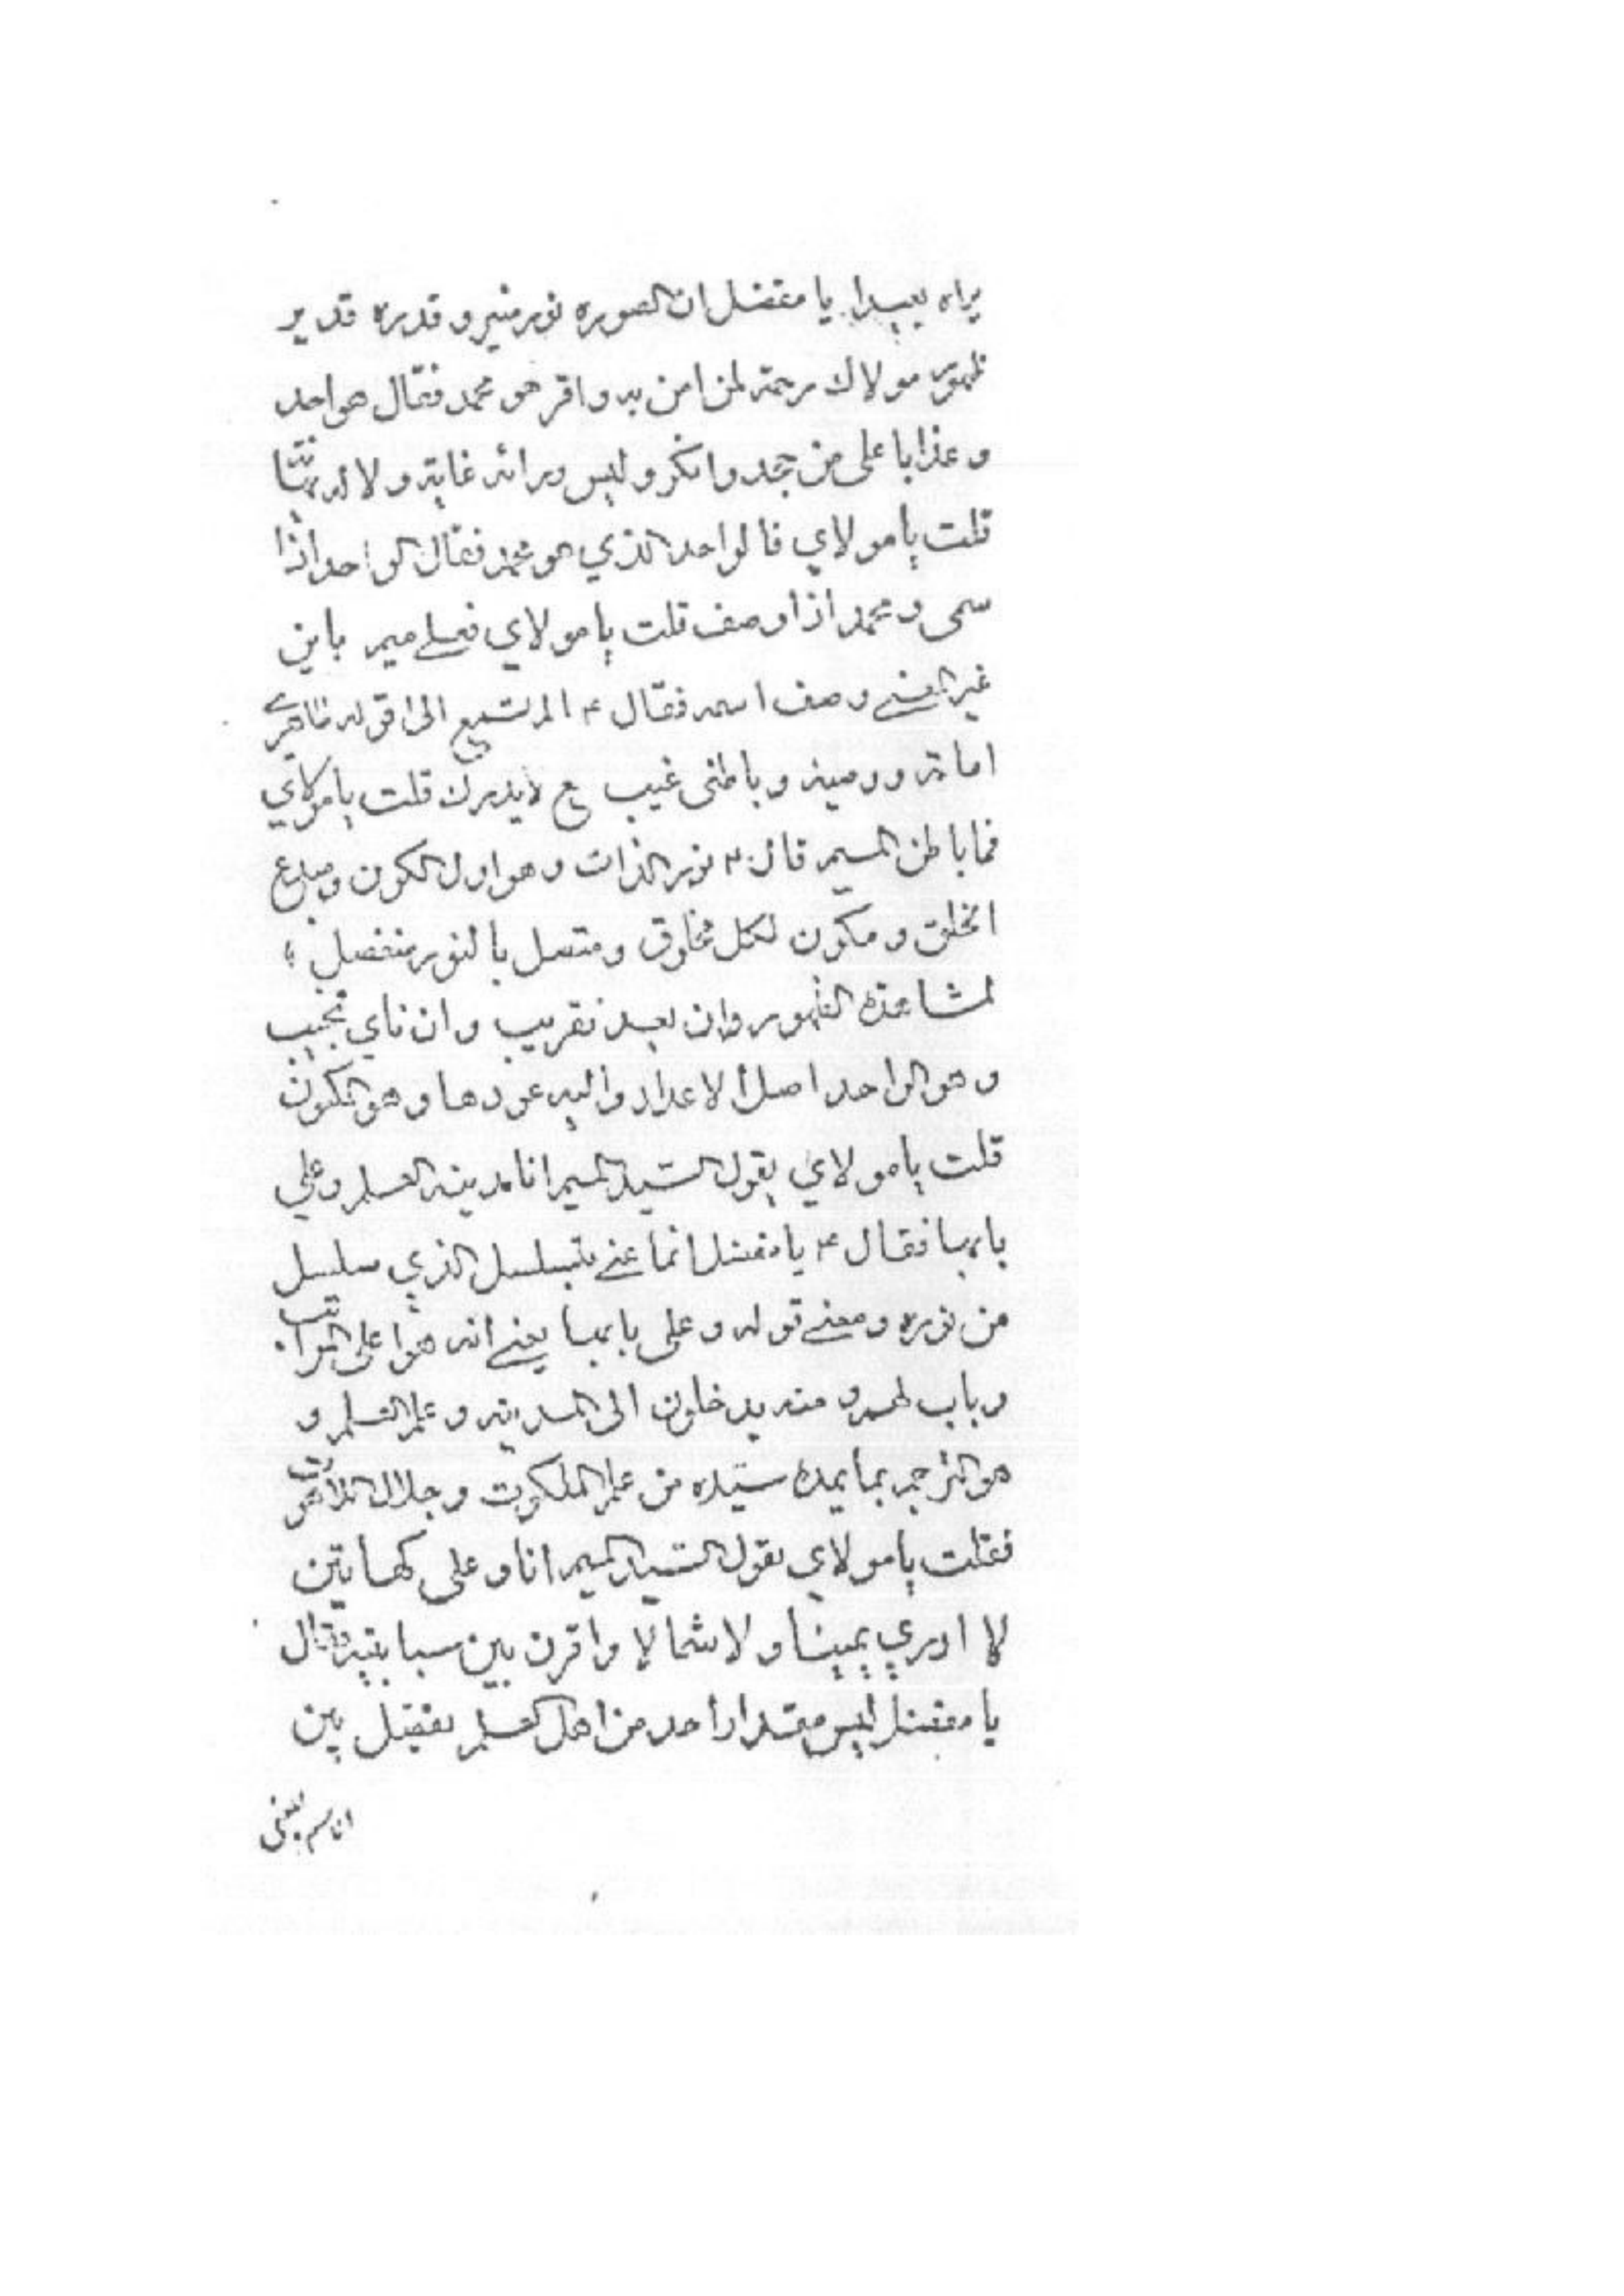 يراه بعيدا يا مفضل ان الصوره نور منير و قدره قدير
ظهور مولاك رحمة لمن امن به واقر هو محمد فقال هو احد
و عذابا على من جحد وانكر و ليس ورائه غاية ولا له
قلت يا مولاي فالواحد الذي هو محمد فقال الواحد اذا
سمى و محمد اذا وصف قلت يا مولاي فعلى ميم باين
غير المعنى وصف اسمه فقال ع الم تسمع الى قوله ظاهري
امامة ووصية وباطني غيب لا يدرك قلت يا مولاي
فما باطن الميم قال ع نور الذات وهو اول الكون ومبدع
الخلق ومكون لكل مخلوق ومتصل بالنور منفصل
لمشاهدة الظهور وان بعد فقريب وان ناي فمجيب
وهو الواحد اصل الاعداد واليه عودها وهو المكون
قلت يا مولاي يقول السيد الميم انا مدينة العلم وعلي
بابها فقال ع يا مفضل انما عنى تسلسل الذي سلسل
من نوره ومعنى قوله وعلى بابها يعني انه هو اعلى المراتب
وباب لهم ومنه يدخلون الى المدينة وعلم العلم و
هو المترجم بما يمده سيده من علم الملكوت وجلال اللاهوت
فقلت يا مولاي يقول السيد الميم انا وعلى كهاتين
لا ادري يمينا ولا شمالا واقرن بين سبابتيه فقال
يا مفضل ليس مقدار احد من اهل العلم يفضل بين